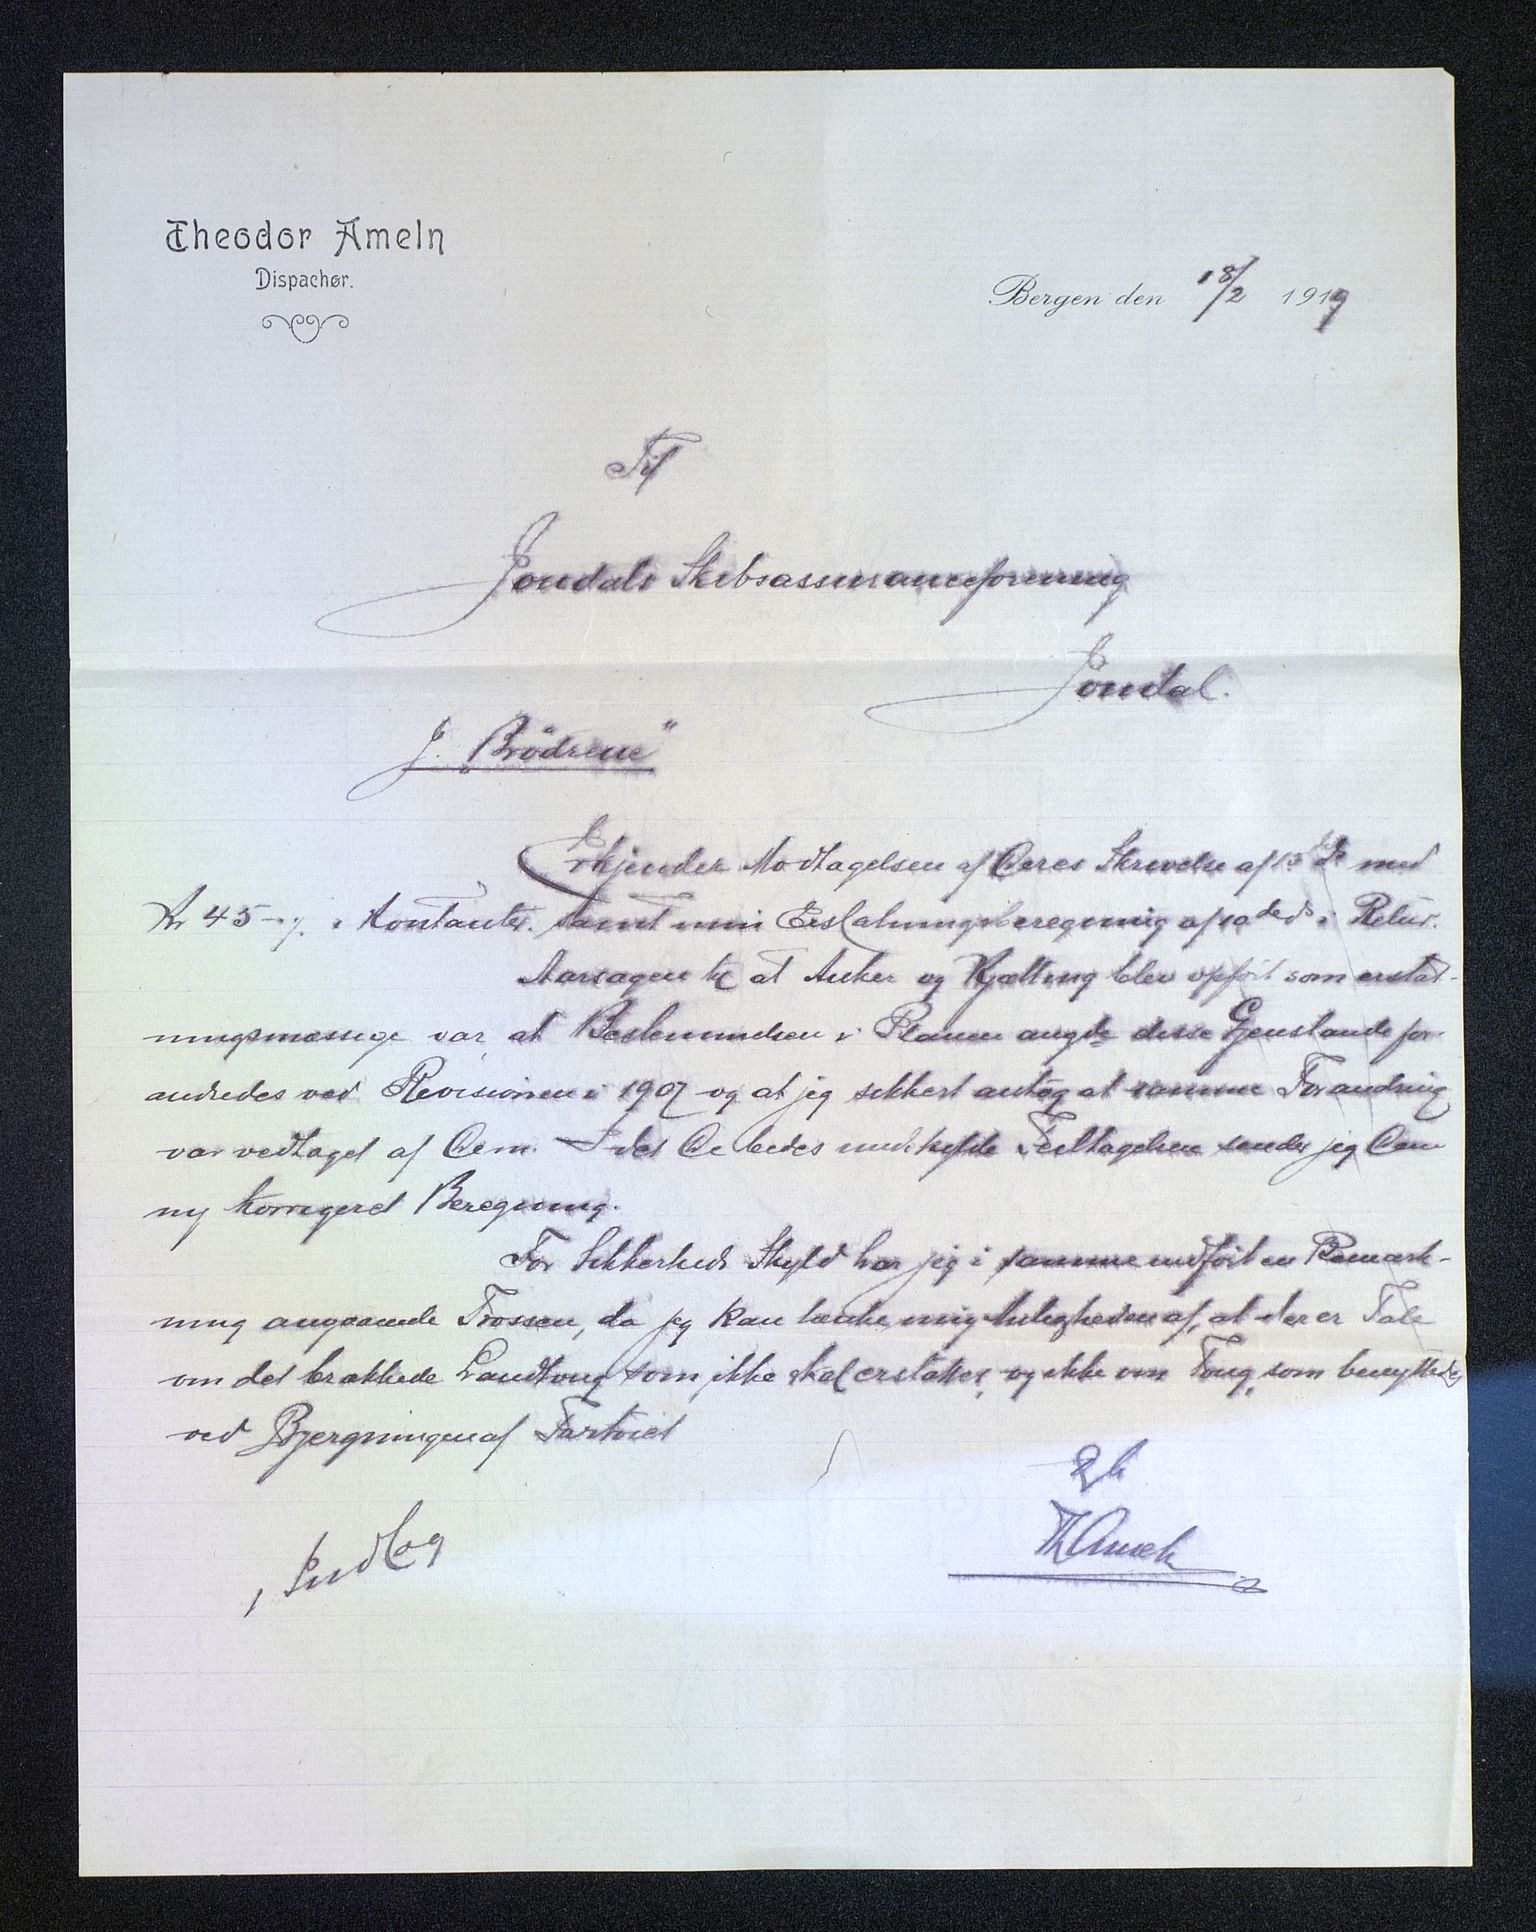 Theodor Ameln
Dispachør.
Bergen den 18/2 1919
Til
Jondals Skibsassuranceforening
Jondal.
J. "Brödrene"
Erkjender Modtagelsen af Deres Skrivelse af 15 de med
Kr 45 i Kontanter. samt min Erstatningsberegning af 10 ds i Retur.
Aarsagen til at Anker og Kjætting blev opført som erstat-
ningsmæssige var, at Bestemmelsen i Planen angde disse Gjenstande for-
andredes ved Revisionen i 1907 og at jeg sikkert antog at samme Forandring
var vedtaget af Dem. Idet De bedes undskylde Feiltagelsen sender jeg Dem
ny korrigeret Beregning.
For Sikkerheds Skyld har jeg i samme indført en Bemærk-
ning angaaende Trossen, da jeg kan tænke mig Muligheden af, at der er Tale
om det brækkede Landtoug som ikke skal erstattes, og ikke om Toug, som benyttedes
ved Bjergningen af Fartøiet
Th Ameln
1 Indlag